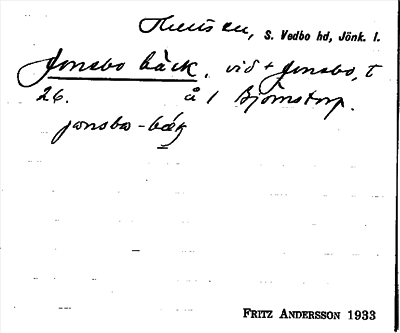 S. Vedbo hd, Jönk. l.
Jonsbo bäck, vid + Jonsbo, t
26. å 1 Björnstorp.
jonsbo-bäk
FRITZ ANDERSSON 1933